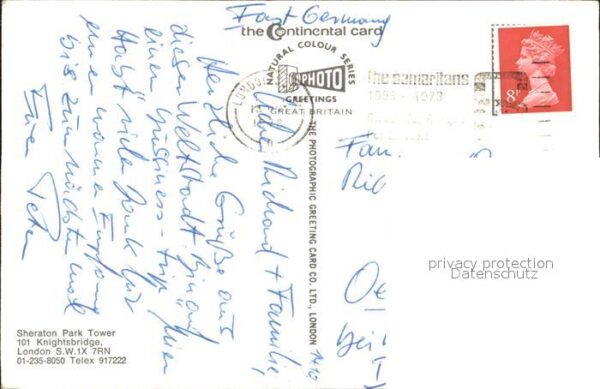 East Germany
the Continental card
NATURAL COLOUR SERIES
PHOTO
GREETINGS
GREAT BRITAIN
LONDON
the samaritans
1953 - 1978
8P
THE PHOTOGRAPHIC GREETING CARD CO. LTD., LONDON
Liebe Richard + Familie,
Herzliche Grüße aus
dieser Weltstadt. Bin auf
einen business-trip hier
Habt vielen Dank für
einen warmen Empfang
bis zum nächsten mal
Euer Peter
Fam.
Ric
Oe
bei
privacy protection
Datenschutz
Sheraton Park Tower
101 Knightsbridge,
London S.W.1X 7RN
01-235-8050 Telex 917222